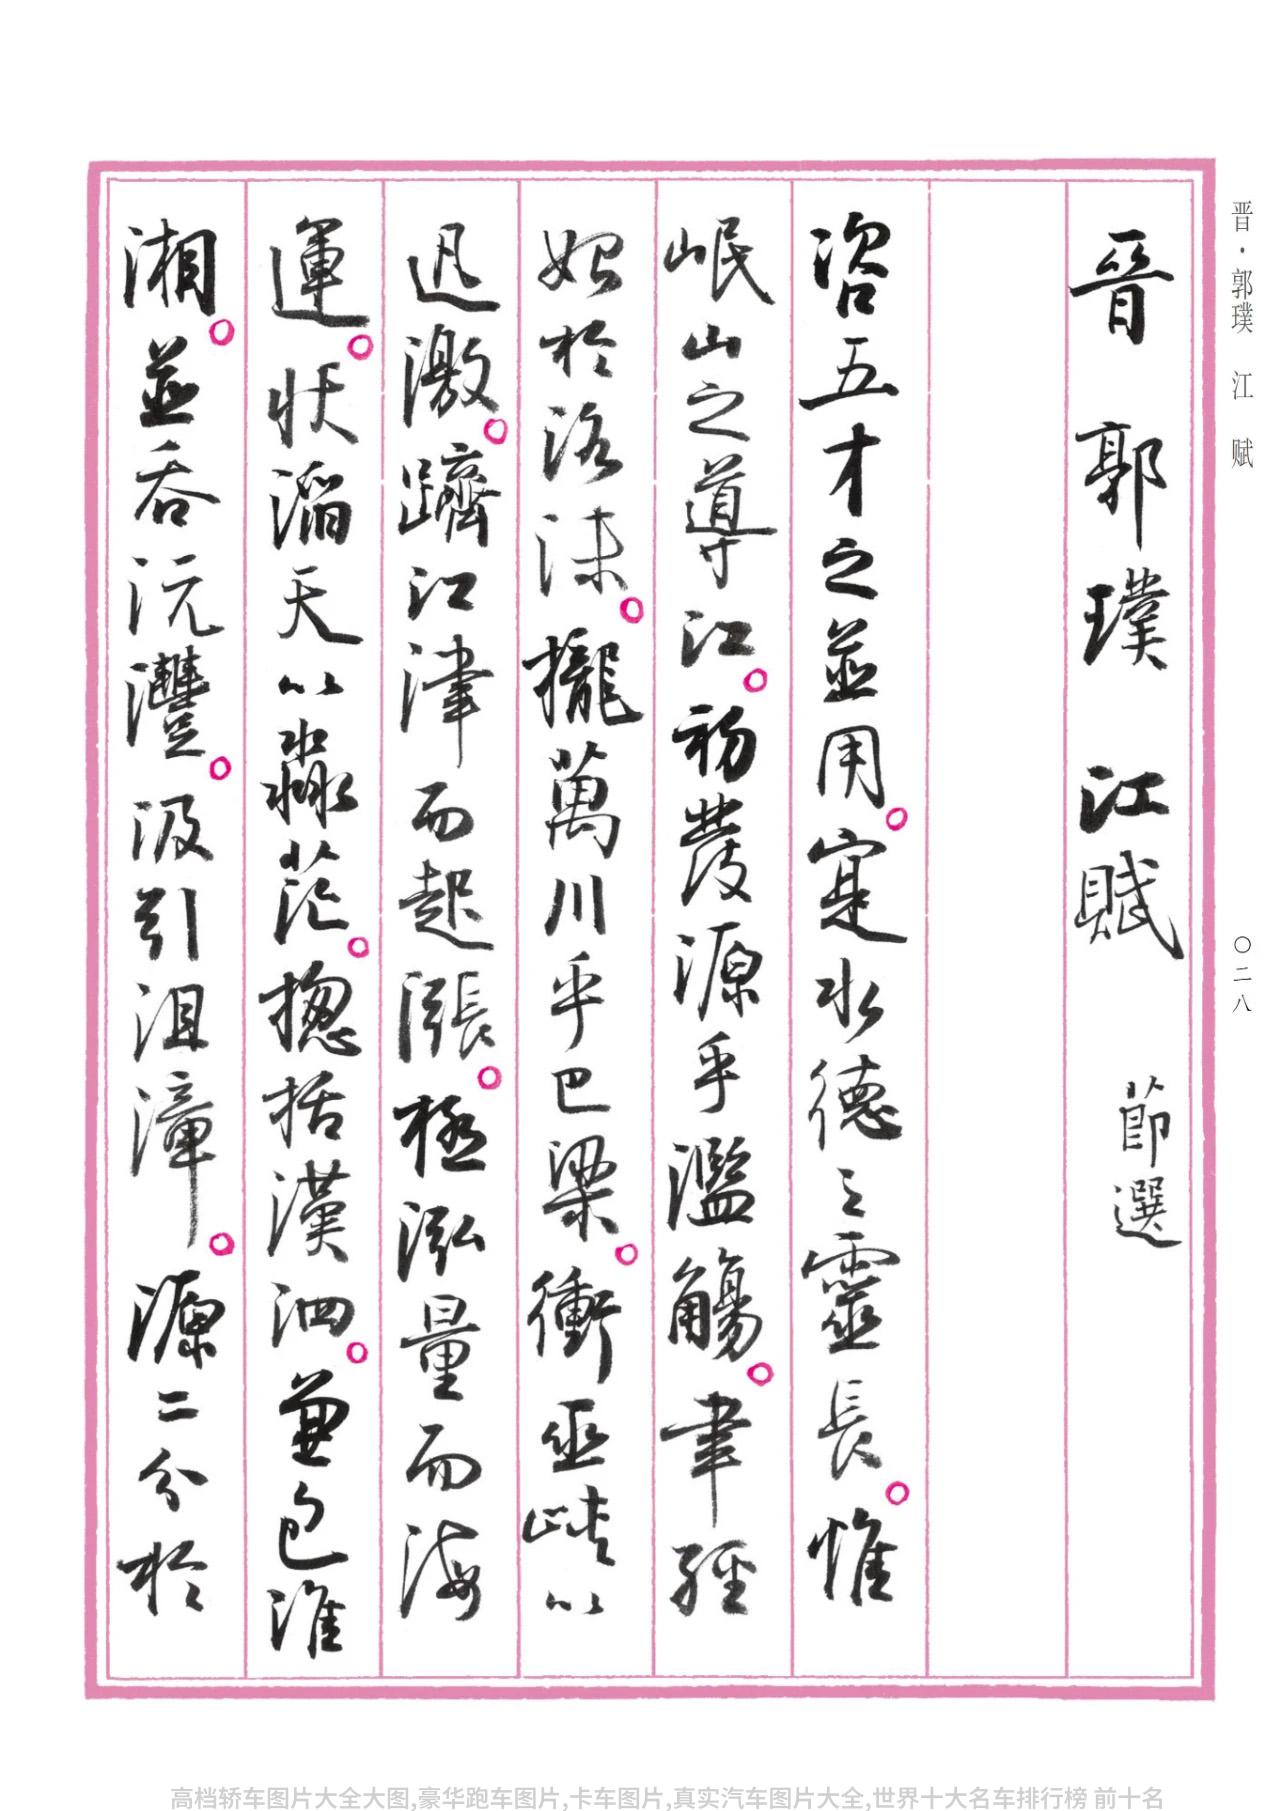 晋·郭璞 江 赋
〇二八
晉 郭璞 江賦 節選
咨五才之並用。寔水德之靈長。惟
岷山之導江。初發源乎濫觴。聿經
始於洛沬。攏萬川乎巴梁。衝巫峽以
迅激。躋江津而起漲。極泓量而海
運。狀滔天以淼茫。揔括漢泗。兼包淮
湘。並吞沅灃。汲引沮漳。源二分於
高档轿车图片大全大图,豪华跑车图片,卡车图片,真实汽车图片大全,世界十大名车排行榜 前十名